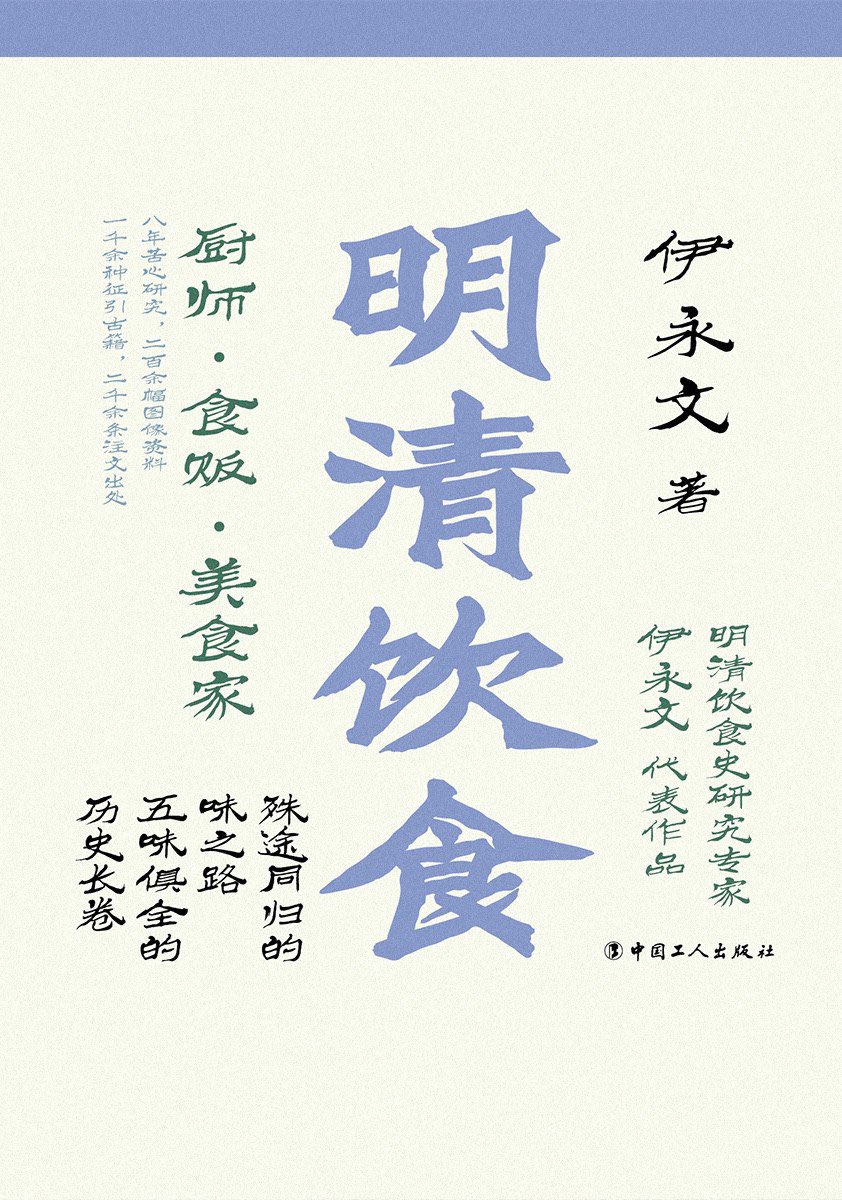 伊永文 著
明清饮食史研究专家
伊永文 代表作品
中国工人出版社
明清饮食
殊途同归的
味之路
五味俱全的
历史长卷
厨师·食贩·美食家
八年苦心研究，二百余幅图像资料
一千余种征引古籍，二千余条注文出处